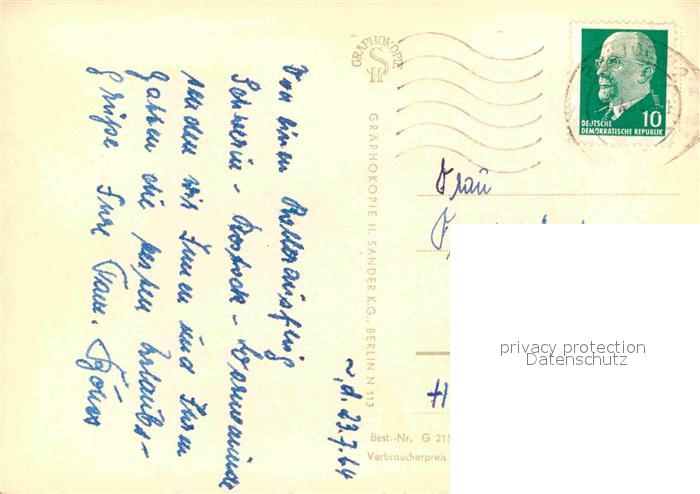 Von einem Betriebsausflug
Schwerin - Rostock - Warnemünde
senden wir Ihnen und Ihrem
Gatten die besten Urlaubs-
Grüße Ihre Fam.
d. 23.7.64
GRAPHOKOPIE
GRAPHOKOPIE H. SANDER K.G., BERLIN N 113
DEUTSCHE
DEMOKRATISCHE REPUBLIK
10
Frau
Best.-Nr. G 215
Verbraucherpreis
privacy protection
Datenschutz